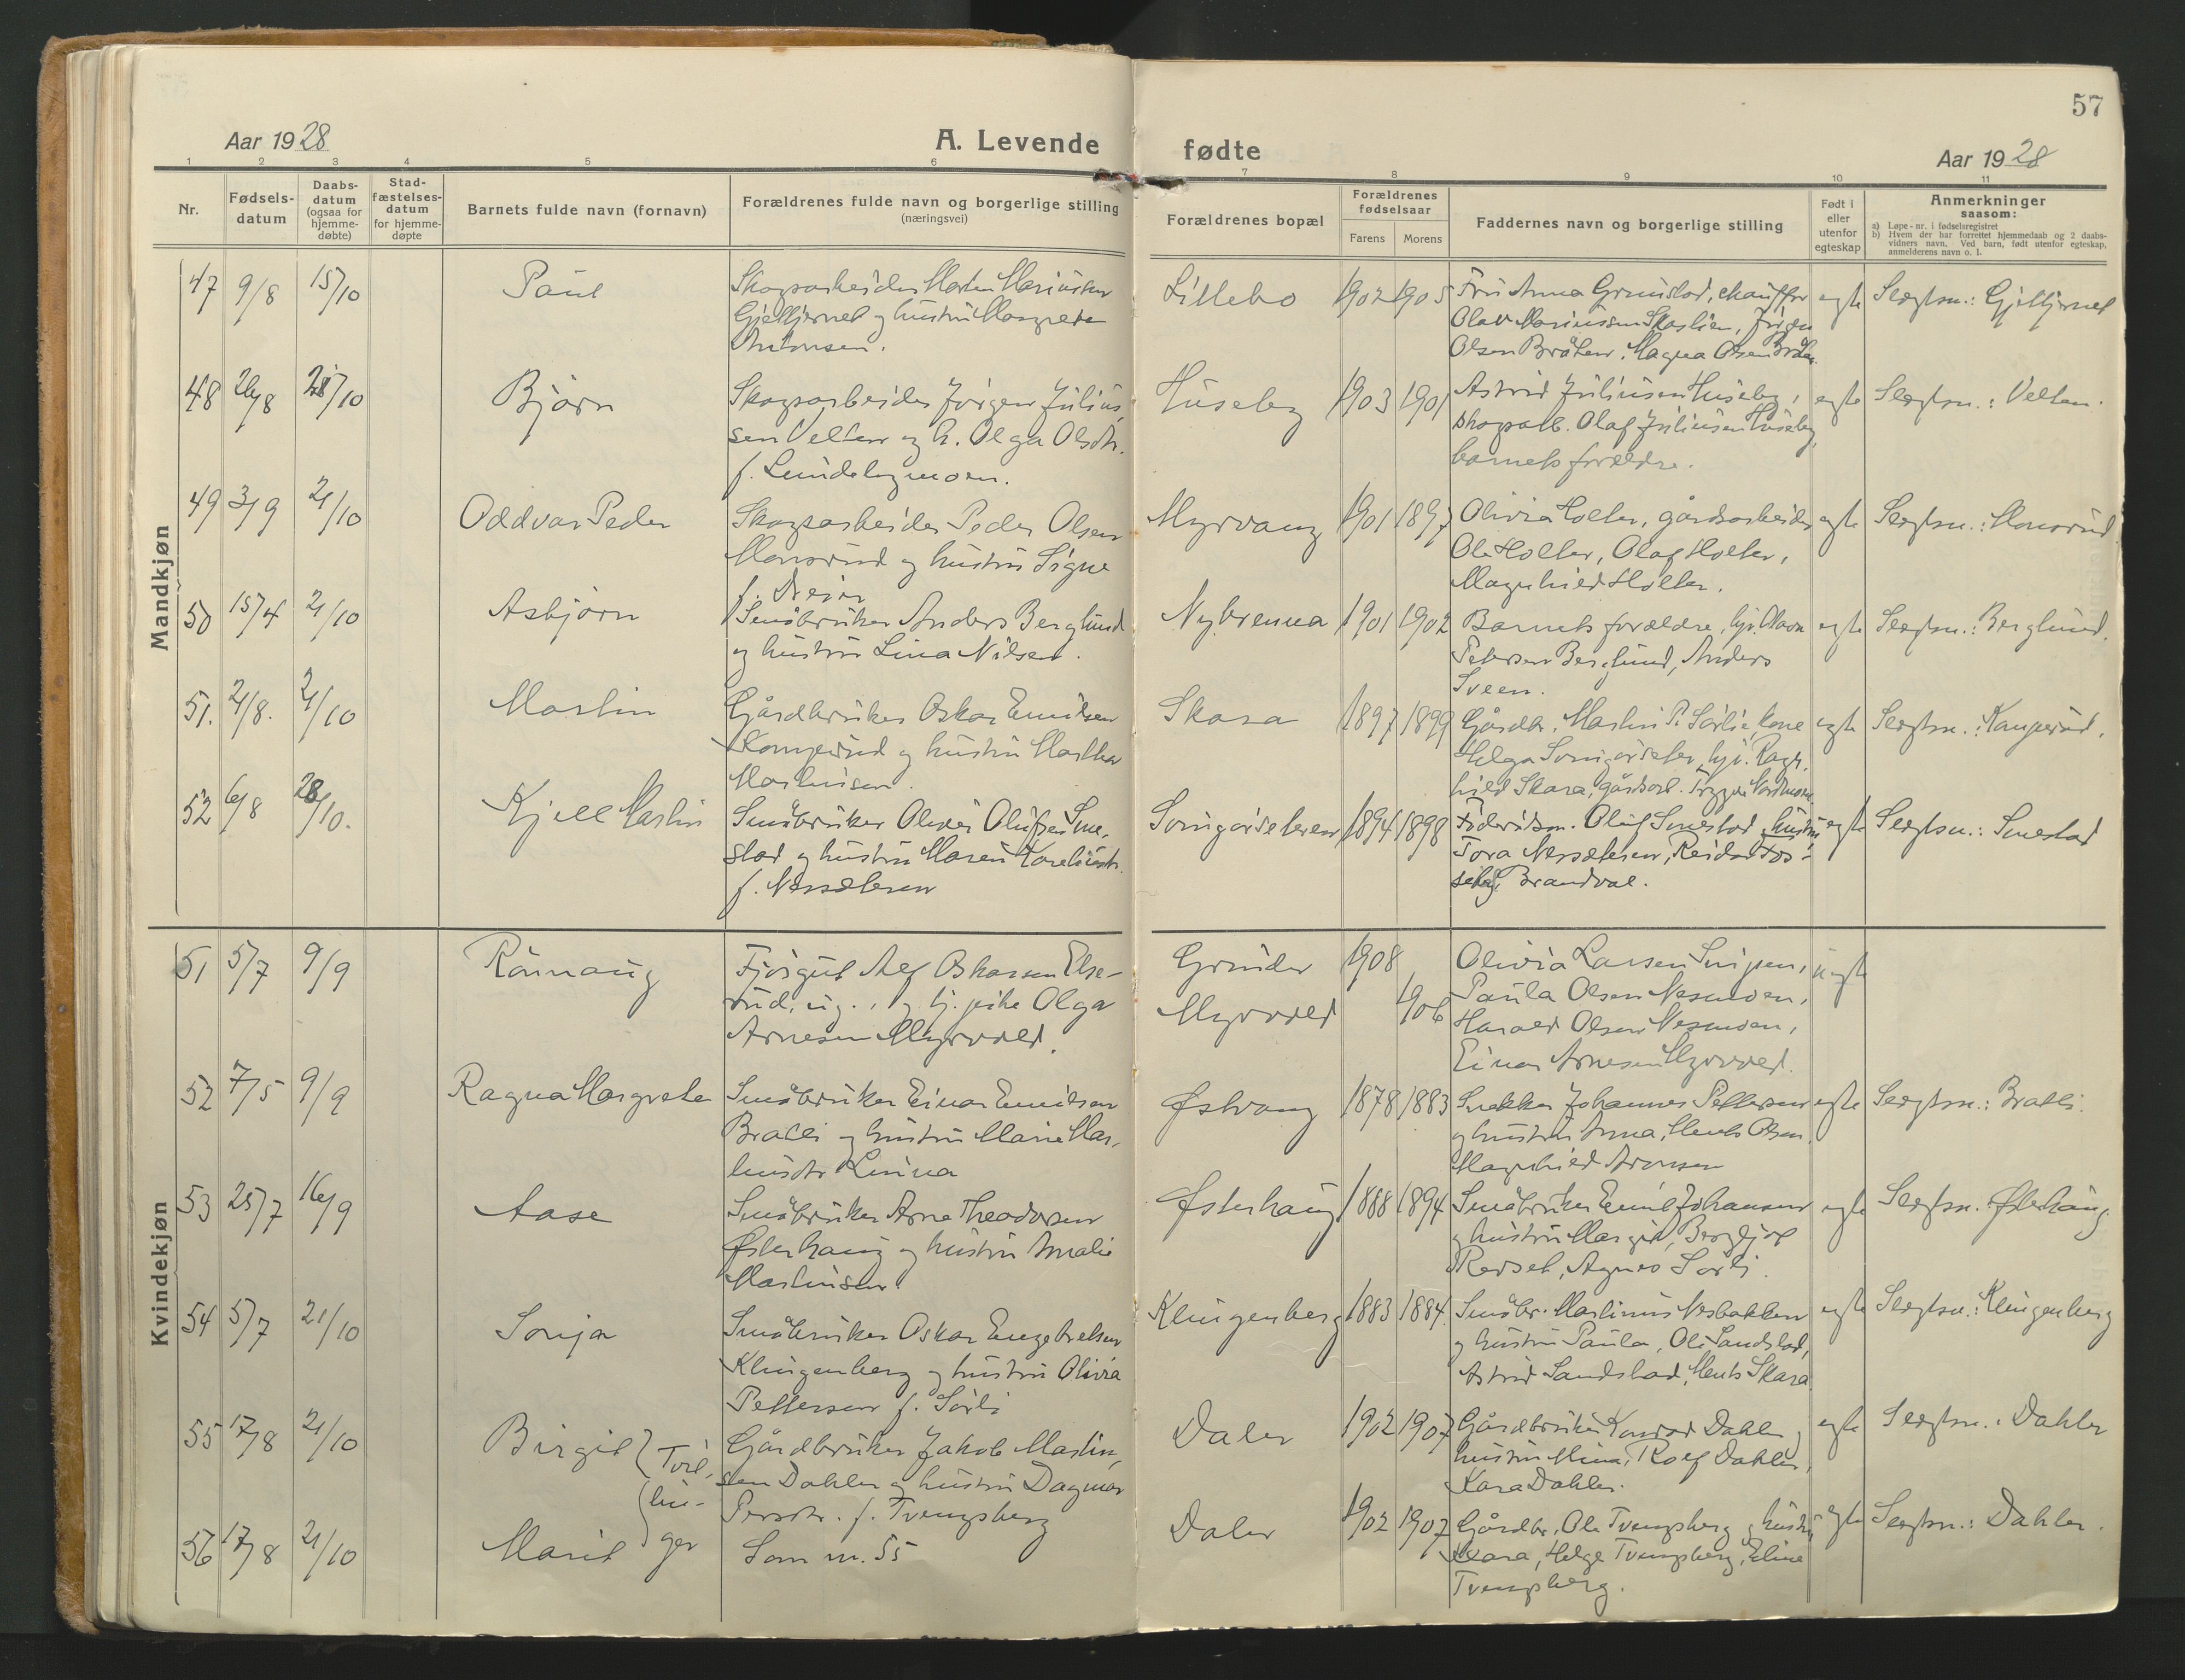 57
Aar 1928
A. Levende fødte
Aar 1928
1 2 3 4 5 6 7 8 9 10 11
Nr.
Fødselsdatum
Daabsdatum (ogsaa for hjemmedøbte)
Stadfæstelsesdatum for hjemmedøpte
Barnets fulde navn (fornavn)
Forældrenes fulde navn og borgerlige stilling (næringsvei)
Forældrenes bopæl
Forældrenes fødselsaar
Farens Morens
Faddernes navn og borgerlige stilling
Født i eller utenfor egteskap
Anmerkninger saasom:
a) Løpe-nr. i fødselsregistret
b) Hvem der har forrettet hjemmedaab og 2 daabsvidners navn. Ved barn, født utenfor egteskap, anmelderens navn o. l.
Mandkjøn
47 9/8 15/10 Paul
Skogsarbeider Marten Mariusen
Gjeltjernet og hustru Margrete
Antonsen.
Lillebo 1902 1905
Fru Anna Grinstad, chauffør
Olav Mariussen Skaslien, Jörgen
Olsen Bråten, Magna Olsen Bråten.
egte Slegtsn.: Gjeltjernet
48 26/8 21/10 Björn
Skogsarbeider Jörgen Julius-
sen Velten og h. Olga Olsdtr.
f. Lundebymoen.
Huseby 1903 1901
Astrid Juliusen Huseby,
skogsarb. Olaf Juliusen Huseby,
barnets forældre.
egte Slegtsn.: Velten.
49 3/9 21/10 Oddvar Peder
Skogsarbeider Peder Olsen
Monsrud og hustru Signe
f. Dreier
Myrvang 1901 1897
Olivia Holter, gårdsarbeider
Ole Holter, Olaf Holter,
Magnhild Holter.
egte Slegtsn.: Monsrud.
50 15/4 21/10 Asbjörn
Småbruker Anders Berglund
og hustru Lina Nilsen.
Nybrenna 1901 1902
Barnets forældre,
Petersen Berglund, Anders
Sveen.
egte Slegtsn.: Berglund.
51. 21/8. 21/10 Martin
Gårdbruker Oskar Emilsen
Kamperud og hustru Martha
Martinsen.
Skara 1897 1899
Gårdbr. Martin P. Sörlie, kone
Helga Songörseter, hjv. Ragn-
hild Skara, gårdsarb. Trygve Nordmoen.
egte Slegtsn.: Kamperud.
52 6/8 28/10. Kjell Martin
Småbruker Oliver Olufsen Sme-
stad og hustru Maren Kareliusdtr.
f. Næssetren
Songörseteren 1894 1898
Föderådsm. Oluf Smestad, hustru
Tora Næssetren, Reidar Fos-
seby, Brandval.
egte Slegtsn.: Smestad
Kvindekjøn
51 5/7 9/9 Rönnaug
Fjösgut Alf Oskarsen Else-
rud, ug., og tj. pike Olga
Arnesen Myrvold.
Grinder Myrvold 1908 1906
Olivia Larsen Snipen,
Paula Olsen Nesmoen,
Harald Olsen Nesmoen,
Einar Arnesen Myrvold.
uegte
52 7/5 9/9 Ragna Margrete
Småbruker Einar Emilsen
Bratli og hustru Marie Mar-
tinsdtr Linna
Østvang 1878 1883
Snekker Johannes Pettersen
og hustru Anna, Ments Olsen,
Magnhild Aronsen
egte Slegtsn.: Bratli.
53 25/7 16/9 Aase
Småbruker Arne Theodorsen
Østerhaug og hustru Amalie
Martinsen
Østerhaug 1888 1894
Småbruker Emil Johansen
og hustru Margit, Bergljot
Revset, Agnes Sörli.
egte Slegtsn. Østerhaug.
54 5/7 21/10 Sonja
Småbruker Oskar Engebretsen
Klingenberg og hustru Olivia
Pettersen f. Sörli
Klingenberg 1883 1884.
Småbr. Martinius Nesbakken
og hustru Paula, Ole Sandstad,
Astrid Sandstad, Ments Skara.
egte Slegtsn.: Klingenberg
55 17/8 21/10 Birgit } Tvil-
lin-
ger
Gårdbruker Jakob Martin-
sen Dahler og hustru Dagmar
Persdtr. f. Tvengsberg
Daler 1902 1907
Gårdbruker Konrad Dahler og
hustru Mina, Rolf Dahler,
Kara Dahler.
egte Slegtsn.: Dahler
56 17/8 21/10 Marit
Som nr. 55
Daler 1902 1907
Gårdbr. Ole Tvengsberg og hustru
Kara, Helge Tvengsberg, Eline
Tvengsberg.
egte Slegtsn.: Dahler.